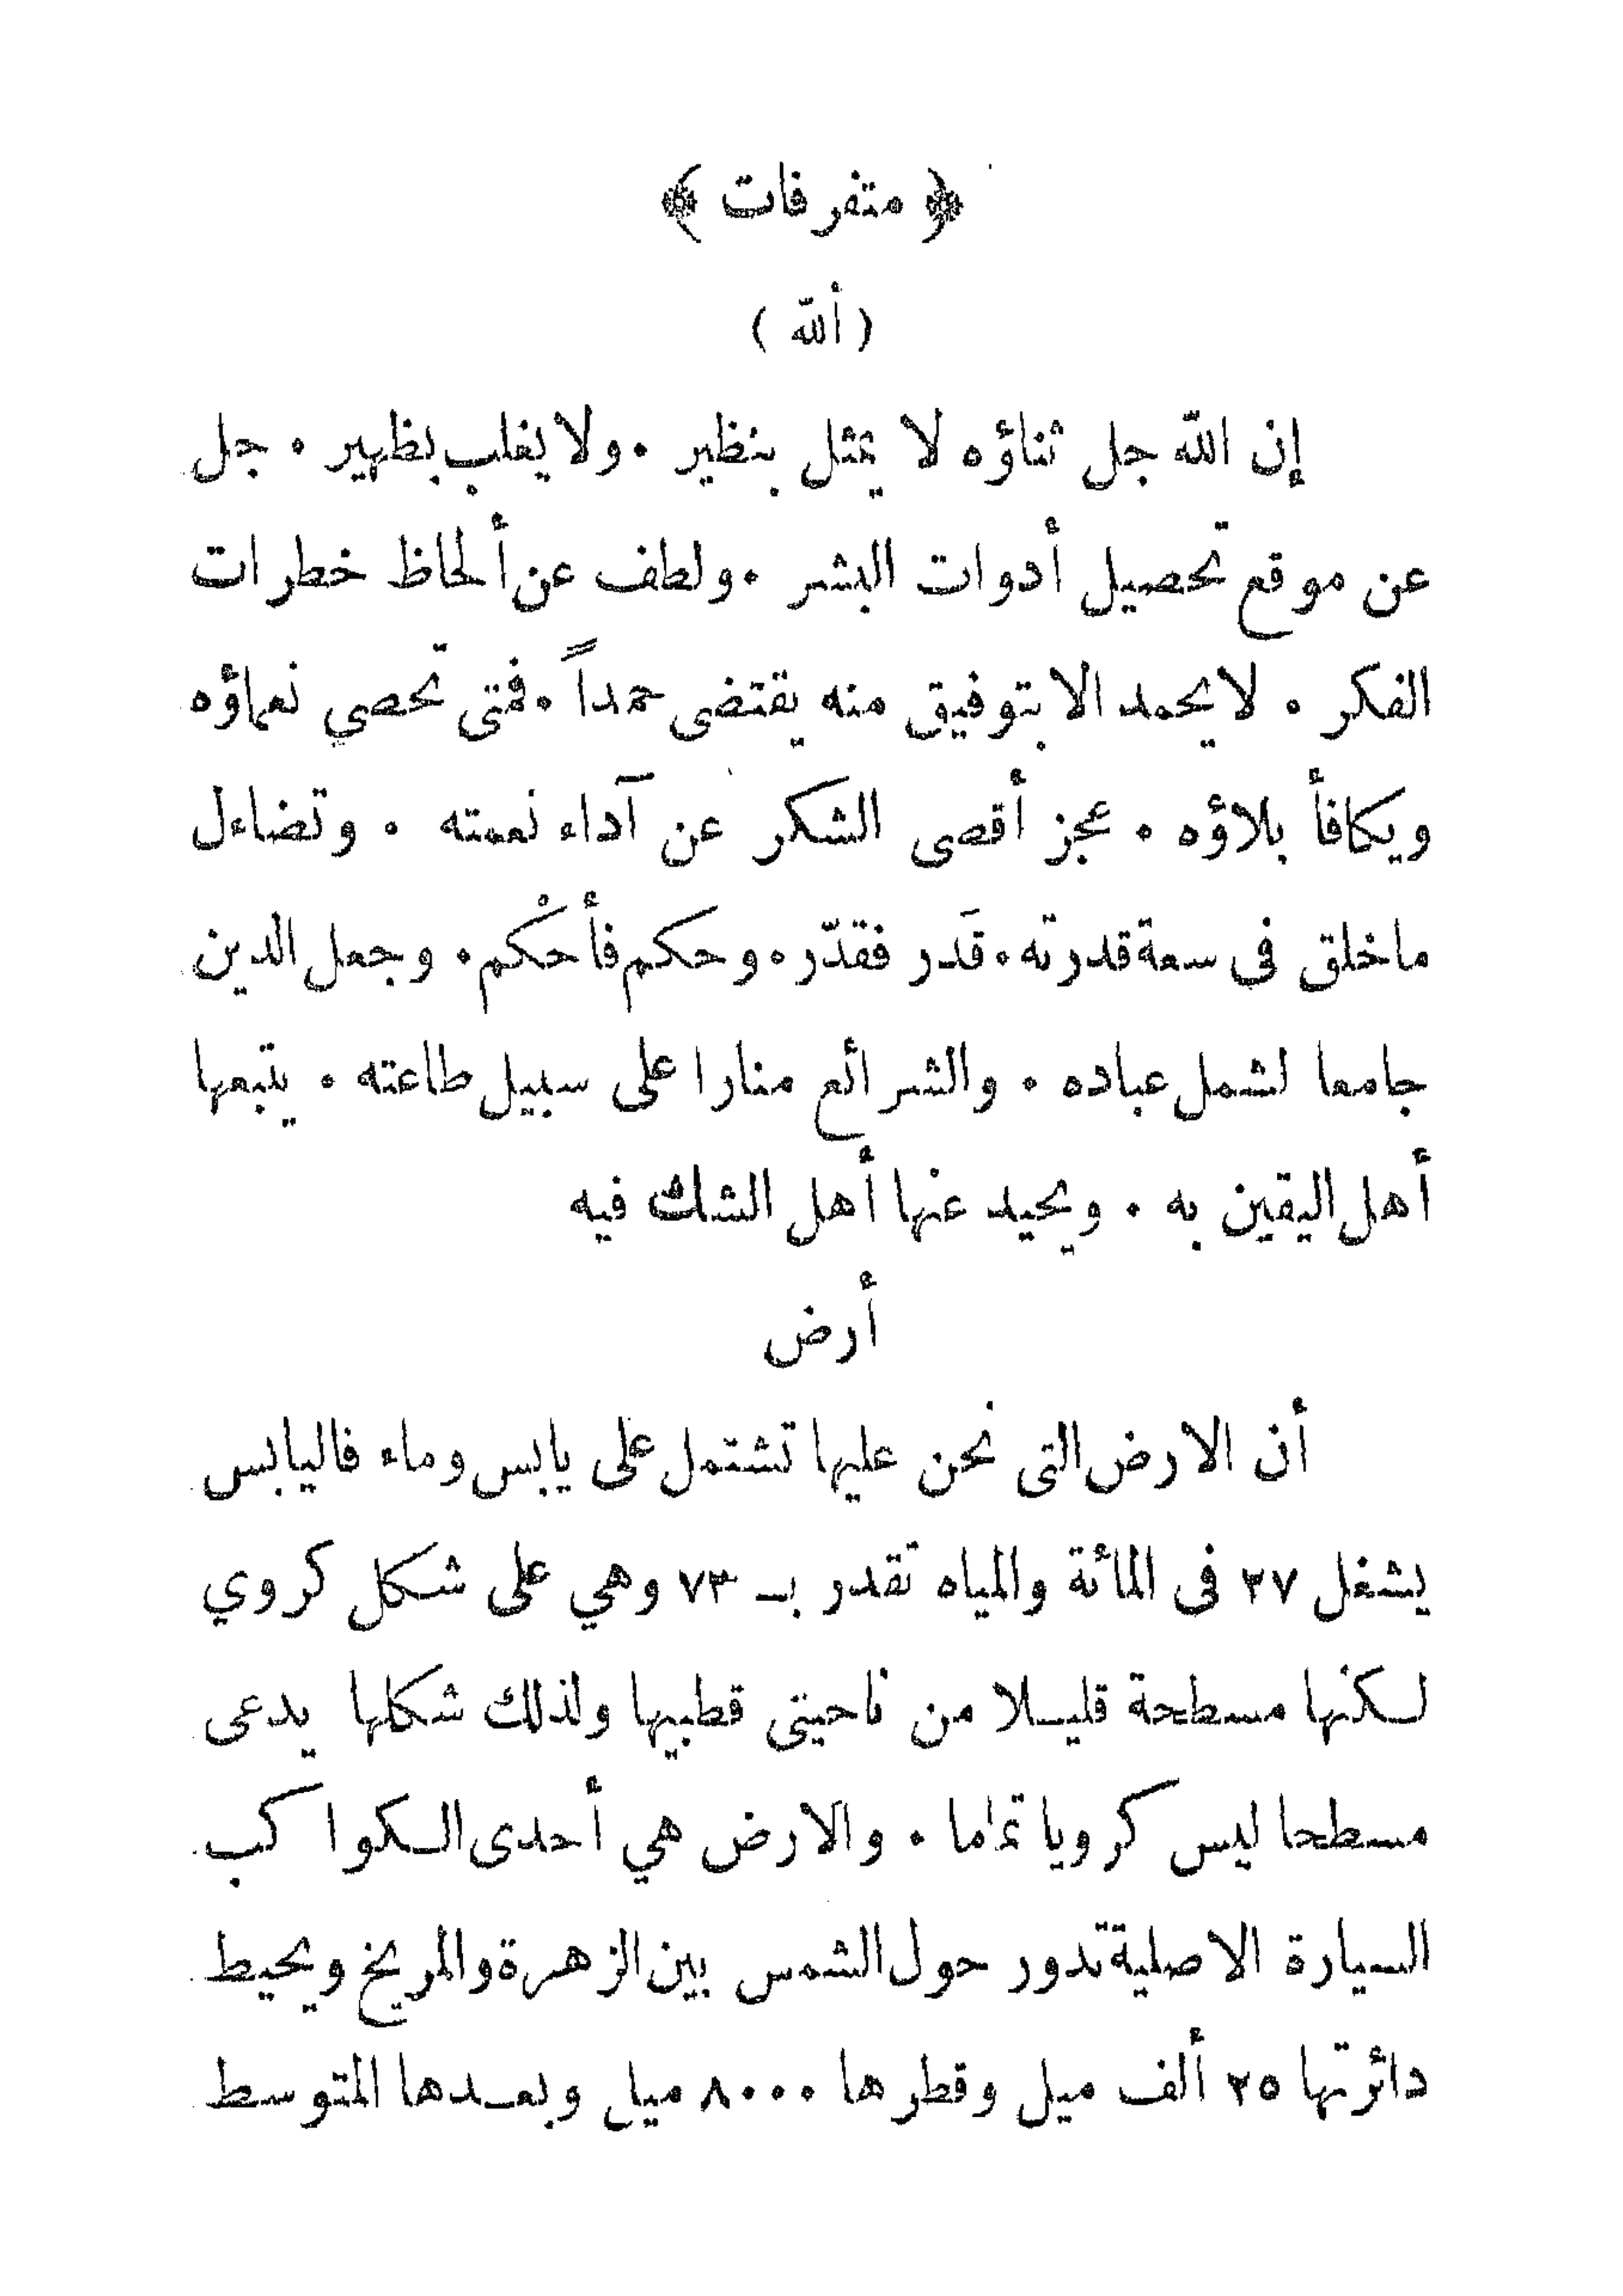 ﴿ متفرقات ﴾
( ألله )
إن الله جل ثناؤه لا يمثل بنظير . ولا يغلب بظهير . جل
عن موقع تحصيل أدوات البشر . ولطف عن ألحاظ خطرات
الفكر . لا يحمد الا بتوفيق منه يقتضى حمداً . فمتى تحصي نعماؤه
ويكافأ بلاؤه . عجز أقصى الشكر عن آداء نعمته . وتضاءل
ماخلق فى سعة قدرته . قَدر فقدّر . وحكم فأحْكم . وجعل الدين
جامعا لشمل عباده . والشرائع منارا على سبيل طاعته . يتبعها
أهل اليقين به . ويحيد عنها أهل الشك فيه
أرض
أن الارض التى نحن عليها تشتمل على يابس وماء فاليابس
يشغل ٢٧ فى المائة والمياه تقدر بـ ٧٣ وهي على شكل كروي
لكنها مسطحة قليلا من ناحيتى قطبيها ولذلك شكلها يدعى
مسطحا ليس كرويا تماما . والارض هي أحدى الكواكب
السيارة الاصلية تدور حول الشمس بين الزهرة والمريخ ويحيط
دائرتها ٢٥ ألف ميل وقطرها ٨٠٠٠ ميل وبعدها المتوسط